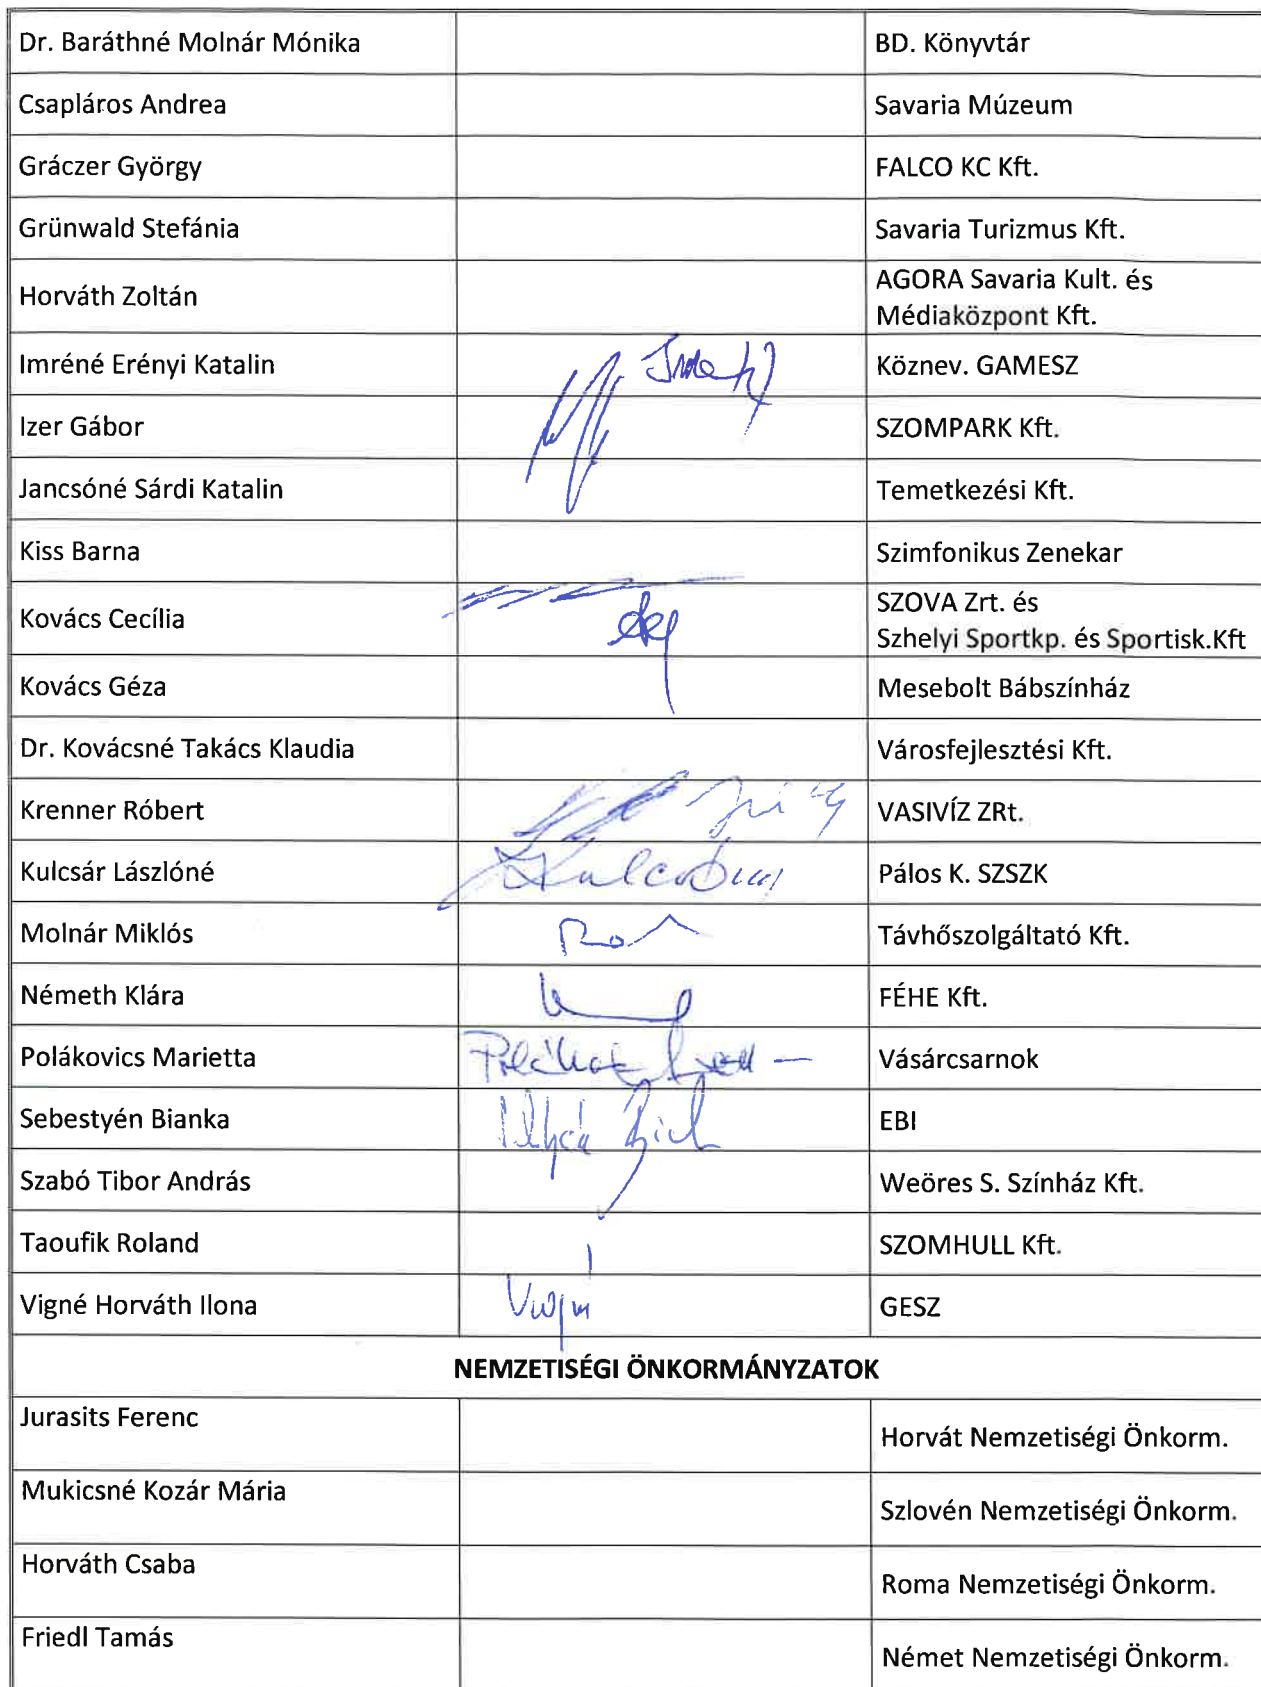 Dr. Baráthné Molnár Mónika BD. Könyvtár
Csapláros Andrea Savaria Múzeum
Gráczer György FALCO KC Kft.
Grünwald Stefánia Savaria Turizmus Kft.
Horváth Zoltán AGORA Savaria Kult. és
Médiaközpont Kft.
Imréné Erényi Katalin Köznev. GAMESZ
Izer Gábor SZOMPARK Kft.
Jancsóné Sárdi Katalin Temetkezési Kft.
Kiss Barna Szimfonikus Zenekar
Kovács Cecília SZOVA Zrt. és
Szhelyi Sportkp. és Sportisk.Kft
Kovács Géza Mesebolt Bábszínház
Dr. Kovácsné Takács Klaudia Városfejlesztési Kft.
Krenner Róbert VASIVÍZ ZRt.
Kulcsár Lászlóné Pálos K. SZSZK
Molnár Miklós Távhőszolgáltató Kft.
Németh Klára FÉHE Kft.
Polákovics Marietta Vásárcsarnok
Sebestyén Bianka EBI
Szabó Tibor András Weöres S. Színház Kft.
Taoufik Roland SZOMHULL Kft.
Vigné Horváth Ilona GESZ
NEMZETISÉGI ÖNKORMÁNYZATOK
Jurasits Ferenc Horvát Nemzetiségi Önkorm.
Mukicsné Kozár Mária Szlovén Nemzetiségi Önkorm.
Horváth Csaba Roma Nemzetiségi Önkorm.
Friedl Tamás Német Nemzetiségi Önkorm.